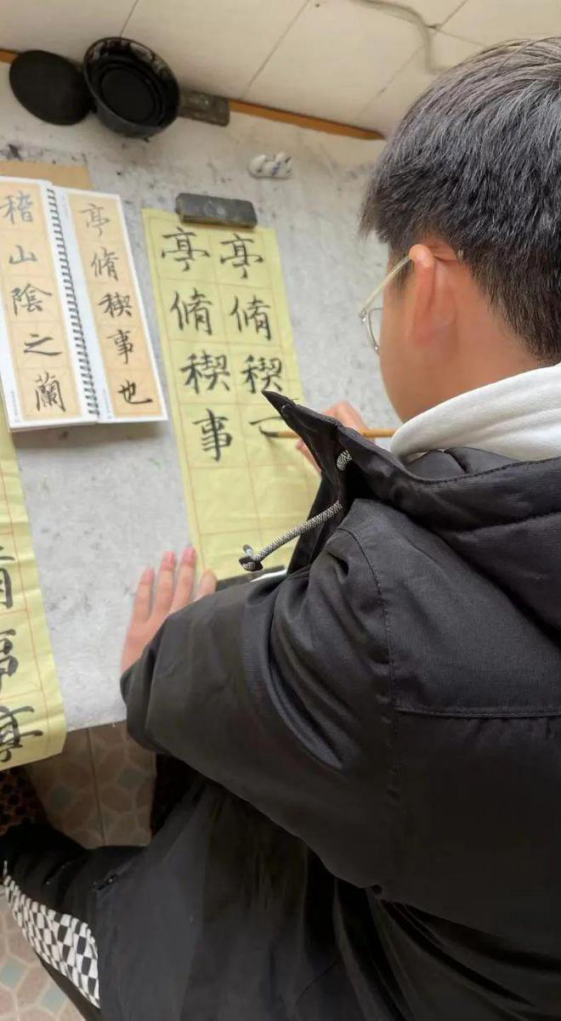 稽山陰之蘭
亭脩稧事也
亭脩稧事
亭脩稧
亭